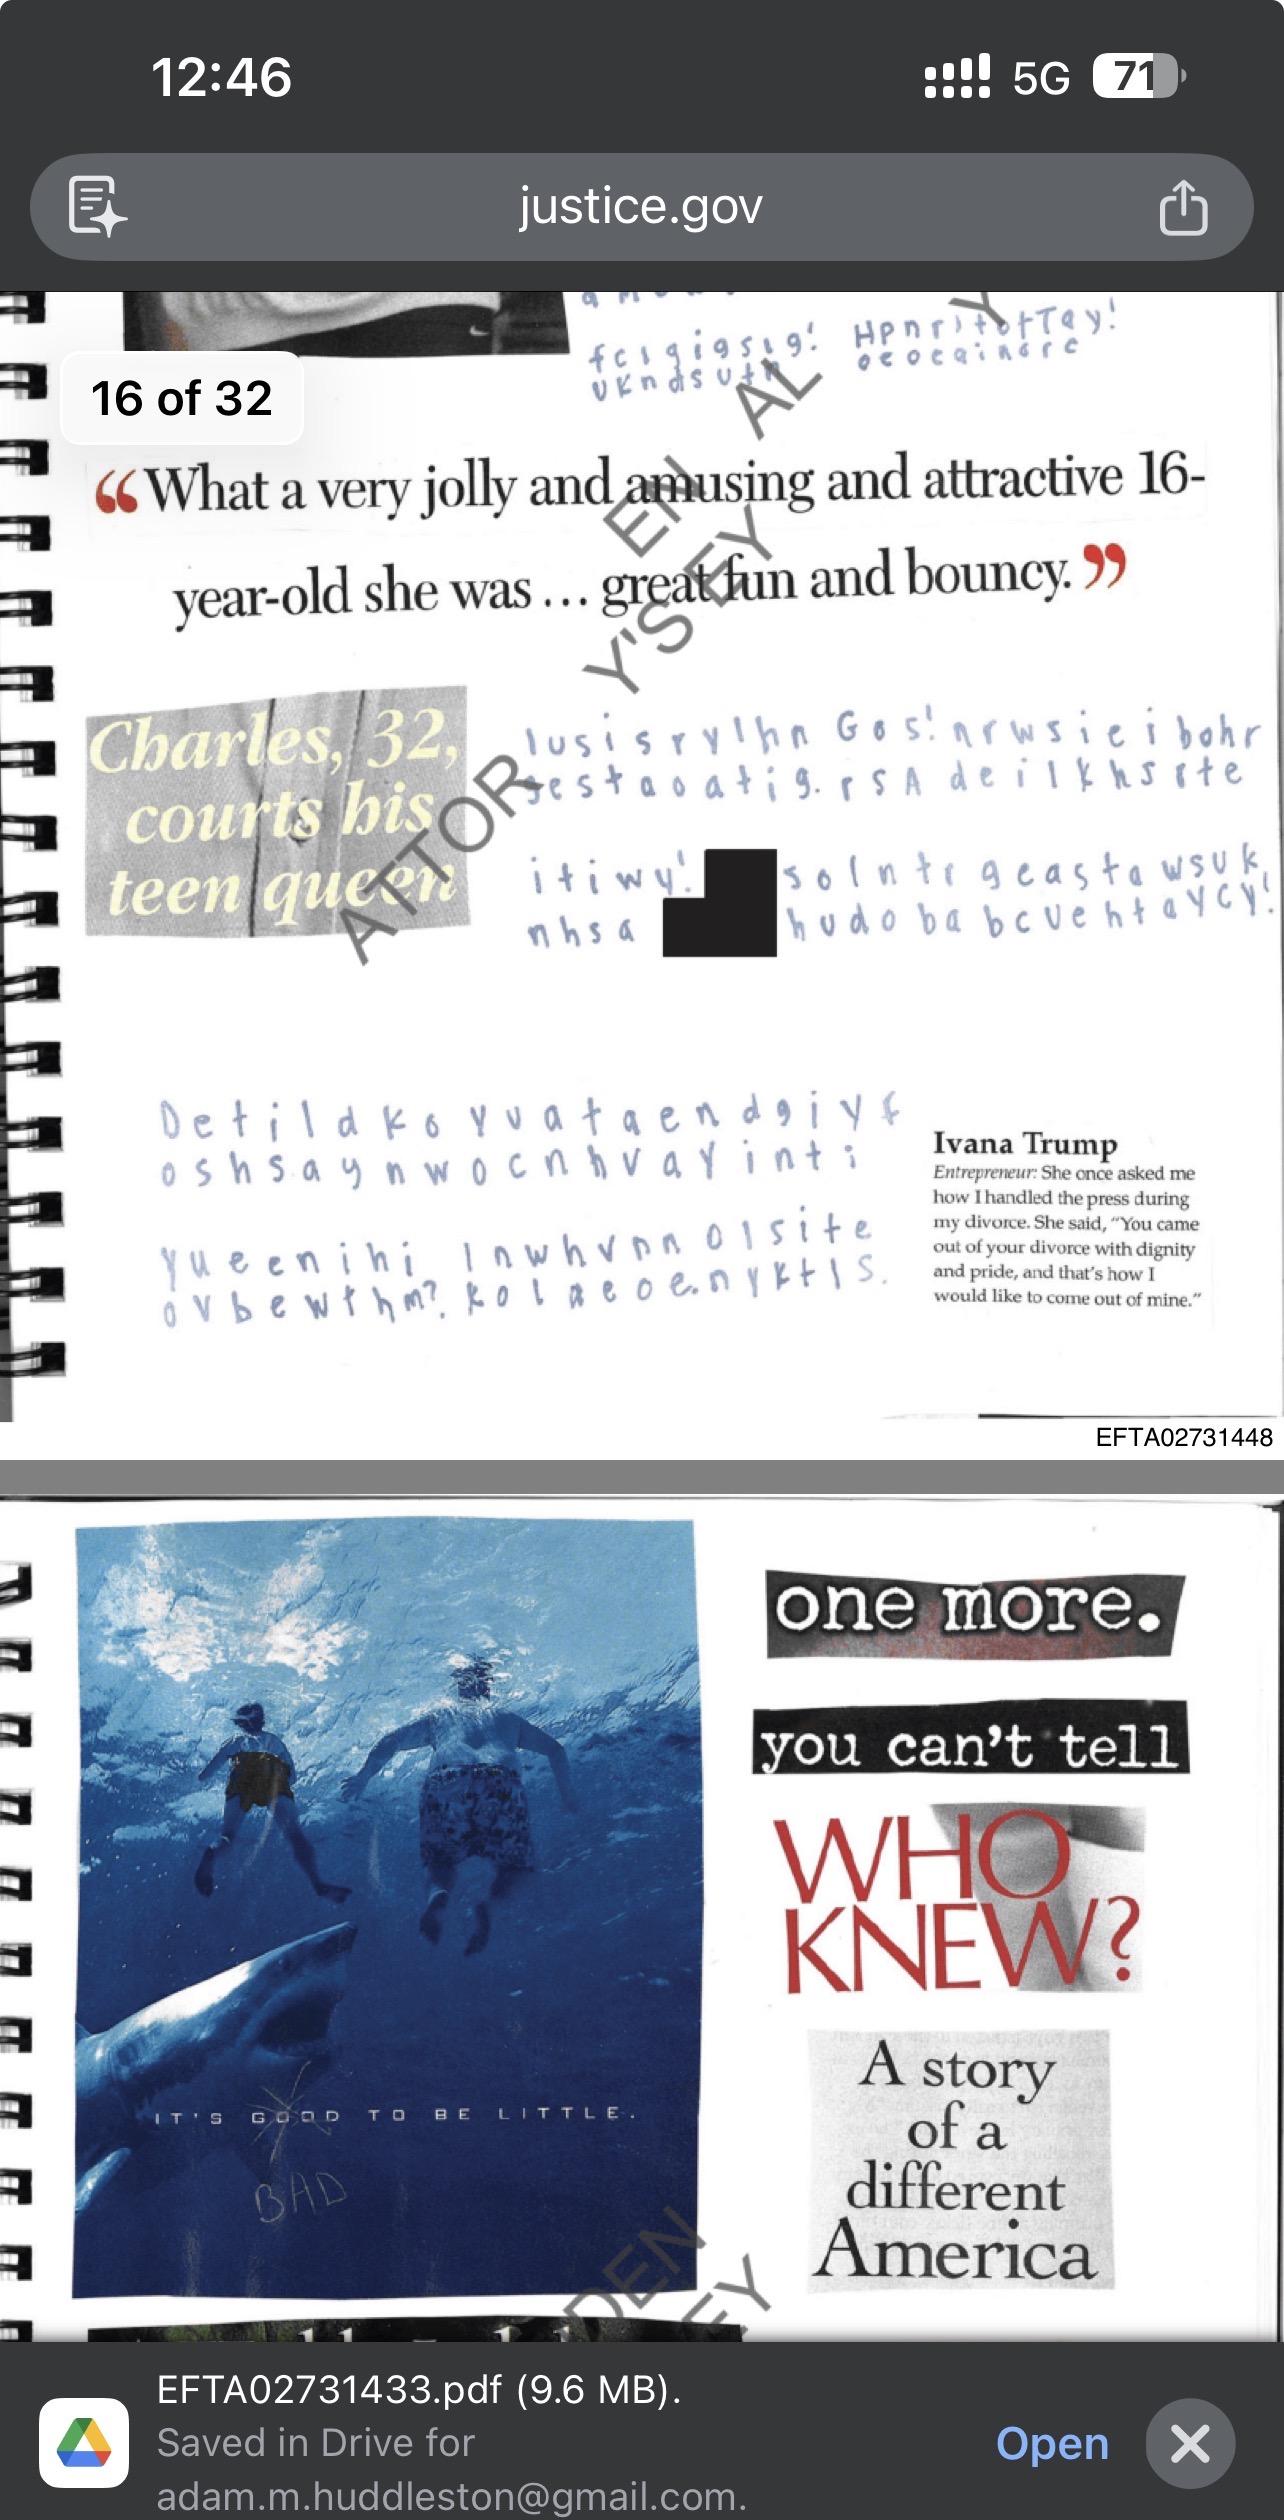 12:46
5G 71
justice.gov
16 of 32
“What a very jolly and amusing and attractive 16-
year-old she was ... great fun and bouncy.”
Charles, 32,
courts his
teen queen
lusisrylhn Gos! nrwsieibohr
sestaoatig. rSA deilkhsrte
itiwy! solntrgeastawsuk,
nhsa hudobabcuehtaycy!
Detildkoyuataendgiyf
oshsaynwocnhvayinti
Ivana Trump
Entrepreneur: She once asked me
how I handled the press during
my divorce. She said, “You came
out of your divorce with dignity
and pride, and that’s how I
would like to come out of mine.”
yueenihi lnwhvnnolsite
ovbewthm? kolaeoe.nyktls.
EFTA02731448
one more.
you can’t tell
WHO
KNEW?
A story
of a
different
America
IT'S GOOD TO BE LITTLE.
BAD
EFTA02731433.pdf (9.6 MB).
Saved in Drive for
adam.m.huddleston@gmail.com.
Open